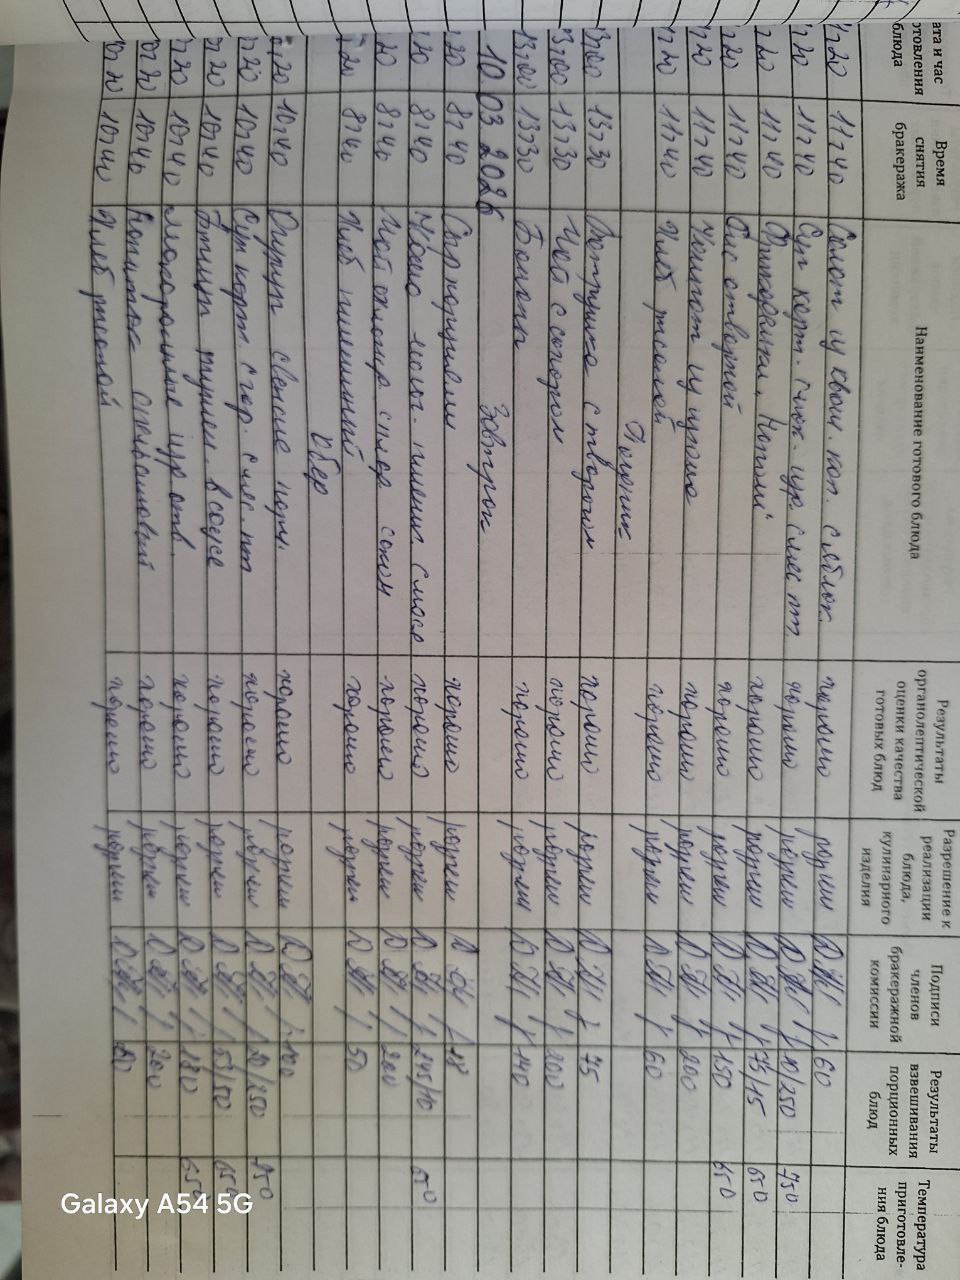 ата и час отовления блюда | Время снятия бракеража | Наименование готового блюда | Результаты органолептической оценки качества готовых блюд | Разрешение к реализации блюда, кулинарного изделия | Подписи членов бракеражной комиссии | Результаты взвешивания порционных блюд | Температура приготовления блюда
20 11 40 Салат из кваш. кап. с яблок. хорошо разреш 60
20 11 40 Суп карт. с мак. изд. с мяс пт хорошо разреш 10/250 750
20 11 40 хорошо разреш 75/15 650
20 11 40 Рис отварной хорошо разреш 150 650
20 11 40 Компот из изюма хорошо разреш 200
20 11 40 Хлеб ржаной хорошо разреш 60
Полдник
1300 1330 Ватрушка с творогом хорошо разреш 75
1300 1330 Чай с сахаром хорошо разреш 200
1300 1330 Бананы хорошо разреш 140
10 03 2026 Завтрак
20 8 40 Сыр порциями хорошо разреш 18
20 8 40 Каша пшенн. с маслом хорошо разреш 245/10 650
20 8 40 Чай с сахар хорошо разреш 200
20 8 40 Хлеб пшеничный хорошо разреш 50
Обед
20 10 40 Огурцы свежие порц. хорошо разреш 100
20 10 40 Суп карт. с гор. с мяс. пт хорошо разреш 20/250 750
20 10 40 тушен. в соусе хорошо разреш 50/50 650
20 10 40 Макаронные изд отв. хорошо разреш 180 650
20 10 40 Напиток хорошо разреш 200
20 10 40 Хлеб ржаной хорошо разреш
Galaxy A54 5G